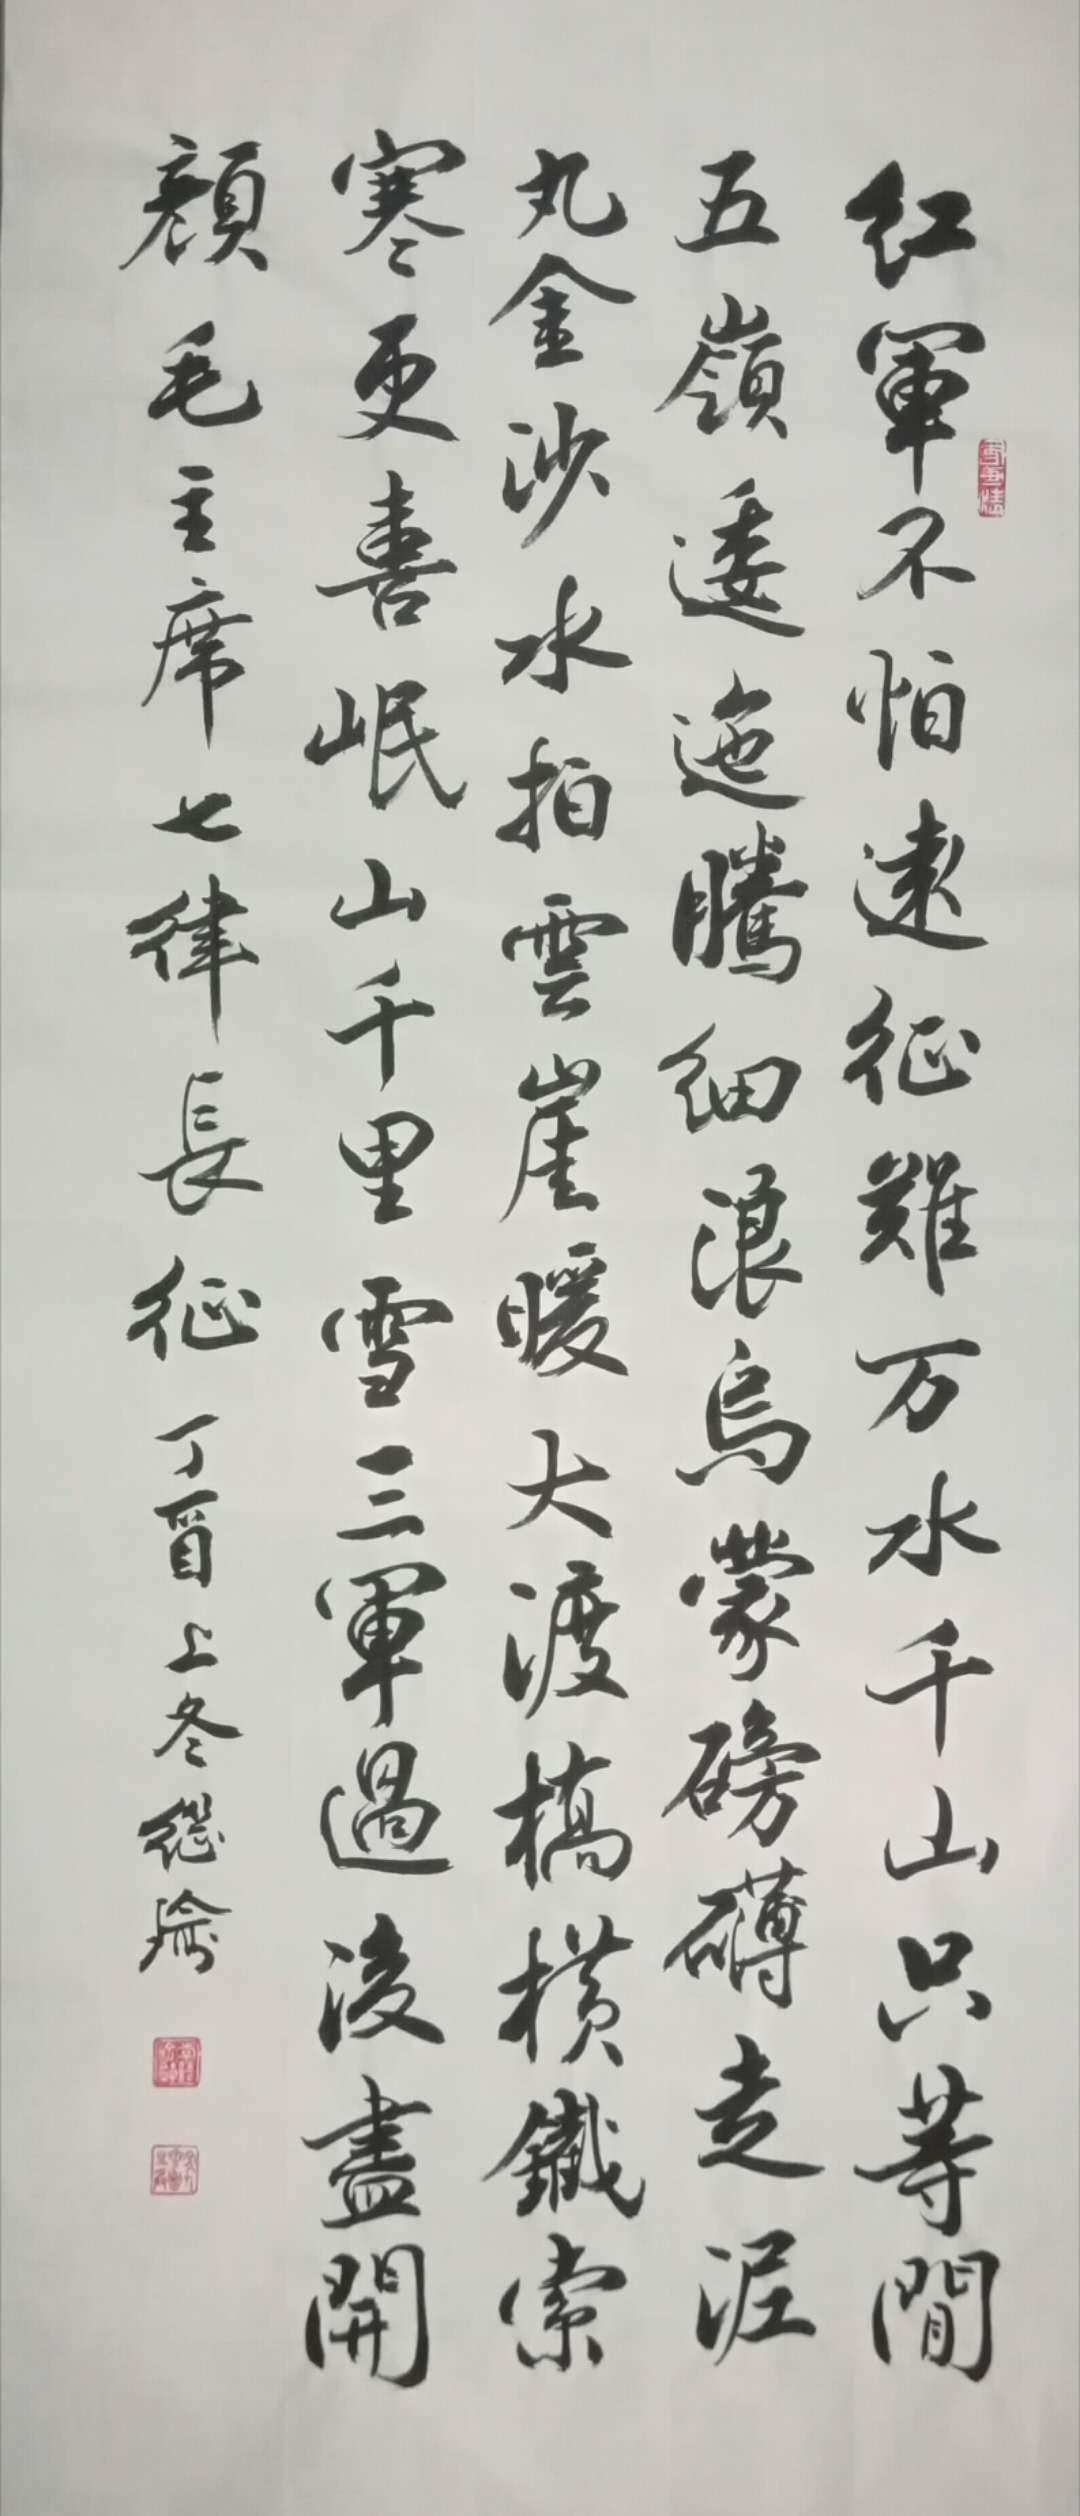 紅軍不怕遠征難万水千山只等閒
五嶺逶迤騰細浪烏蒙磅礴走泥
丸金沙水拍雲崖暖大渡橋橫鐵索
寒更喜岷山千里雪三軍過後盡開
顏毛主席七律長征丁酉上冬繼瑜